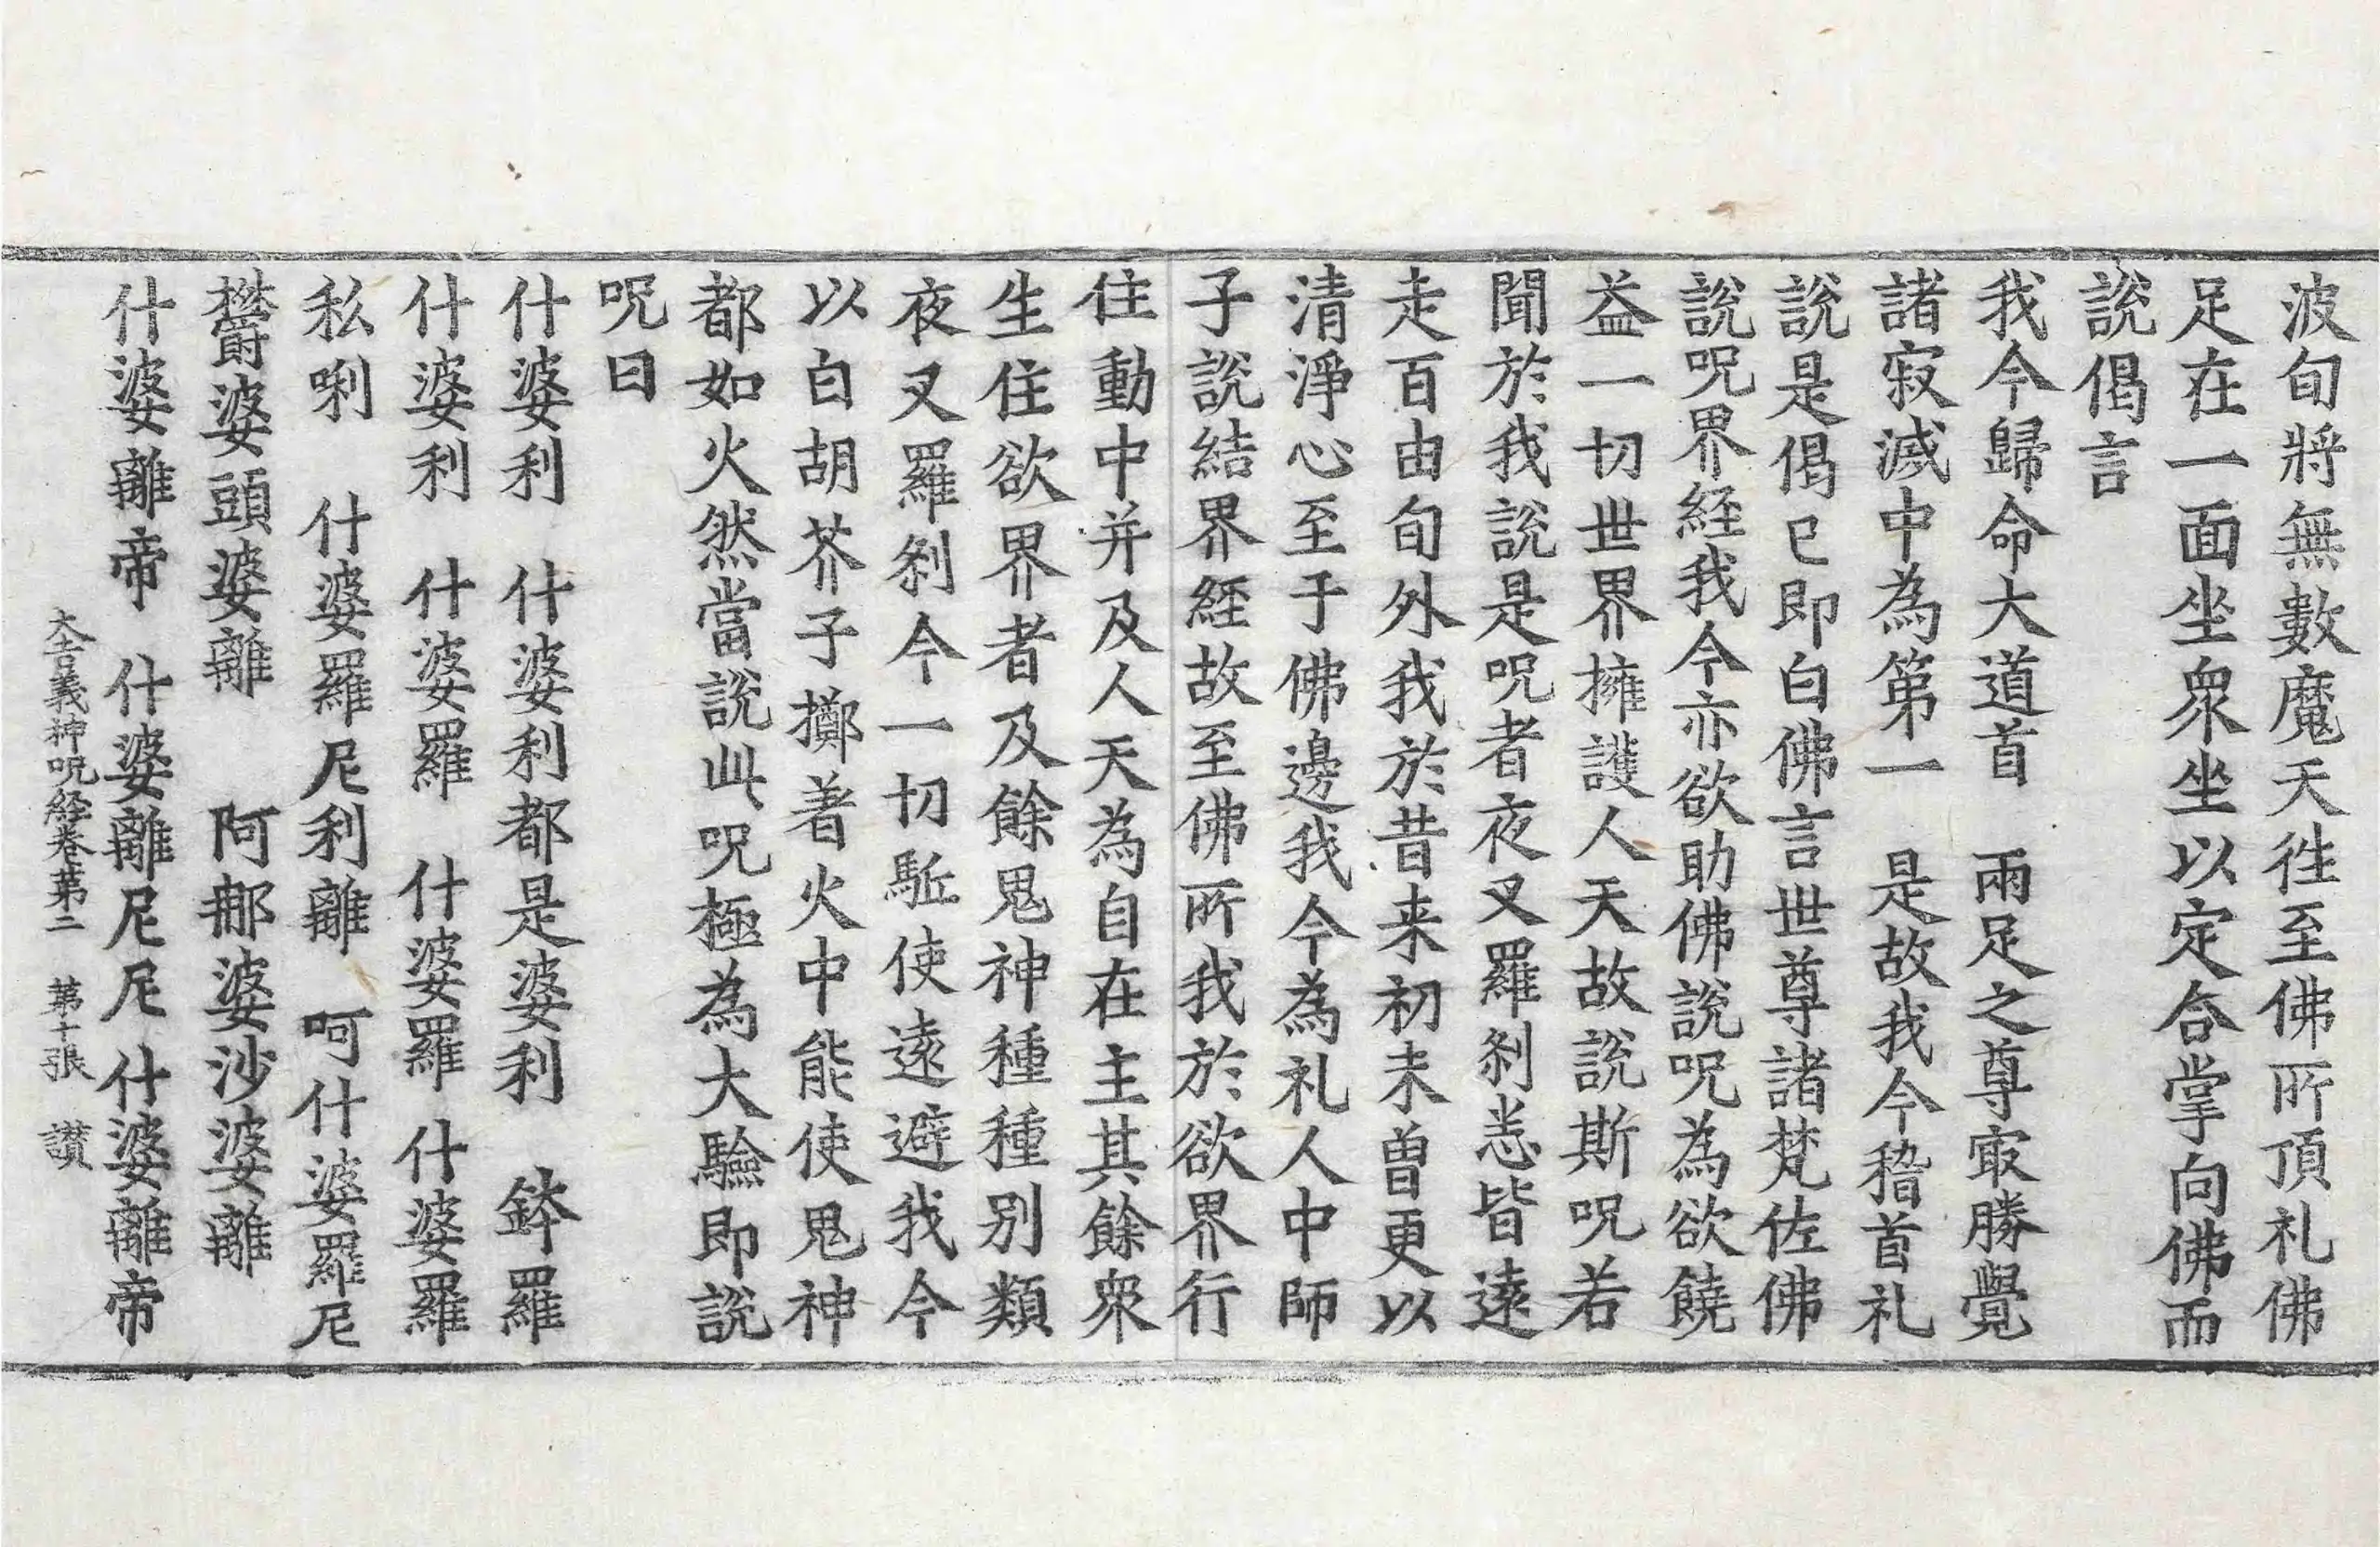 波旬將無數魔天徃至佛所頂礼佛
足在一面坐衆坐以定合掌向佛而
說偈言
我今歸命大道首　兩足之尊㝡勝覺
諸寂滅中為第一　是故我今稽首礼
說是偈已即白佛言世尊諸梵佐佛
說呪界経我今亦欲助佛說呪為欲饒
益一切世界擁護人天故說斯呪若
聞於我說是呪者夜叉羅刹恙皆遠
走百由旬外我於昔来初未曽更以
清淨心至于佛邊我今為礼人中師
子說結界經故至佛所我於欲界行
住動中并及人天為自在主其餘衆
生住欲界者及餘鬼神種種別類
夜叉羅刹今一切駈使遠避我今
以白胡芥子擲著火中能使鬼神
都如火然當說此呪極為大驗即說
呪曰
什婆利　什婆利都是婆利　鉢羅
什婆利　什婆羅　什婆羅　什婆羅
私唎　什婆羅尼利離　呵什婆羅尼
欝婆頭婆離　阿那婆沙婆離
什婆離帝　什婆離尼尼　什婆離帝
大吉義神呪経卷第二　第十張　讃